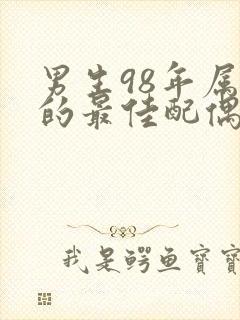 男生98年属
的最佳配偶
我是鳄鱼宝宝